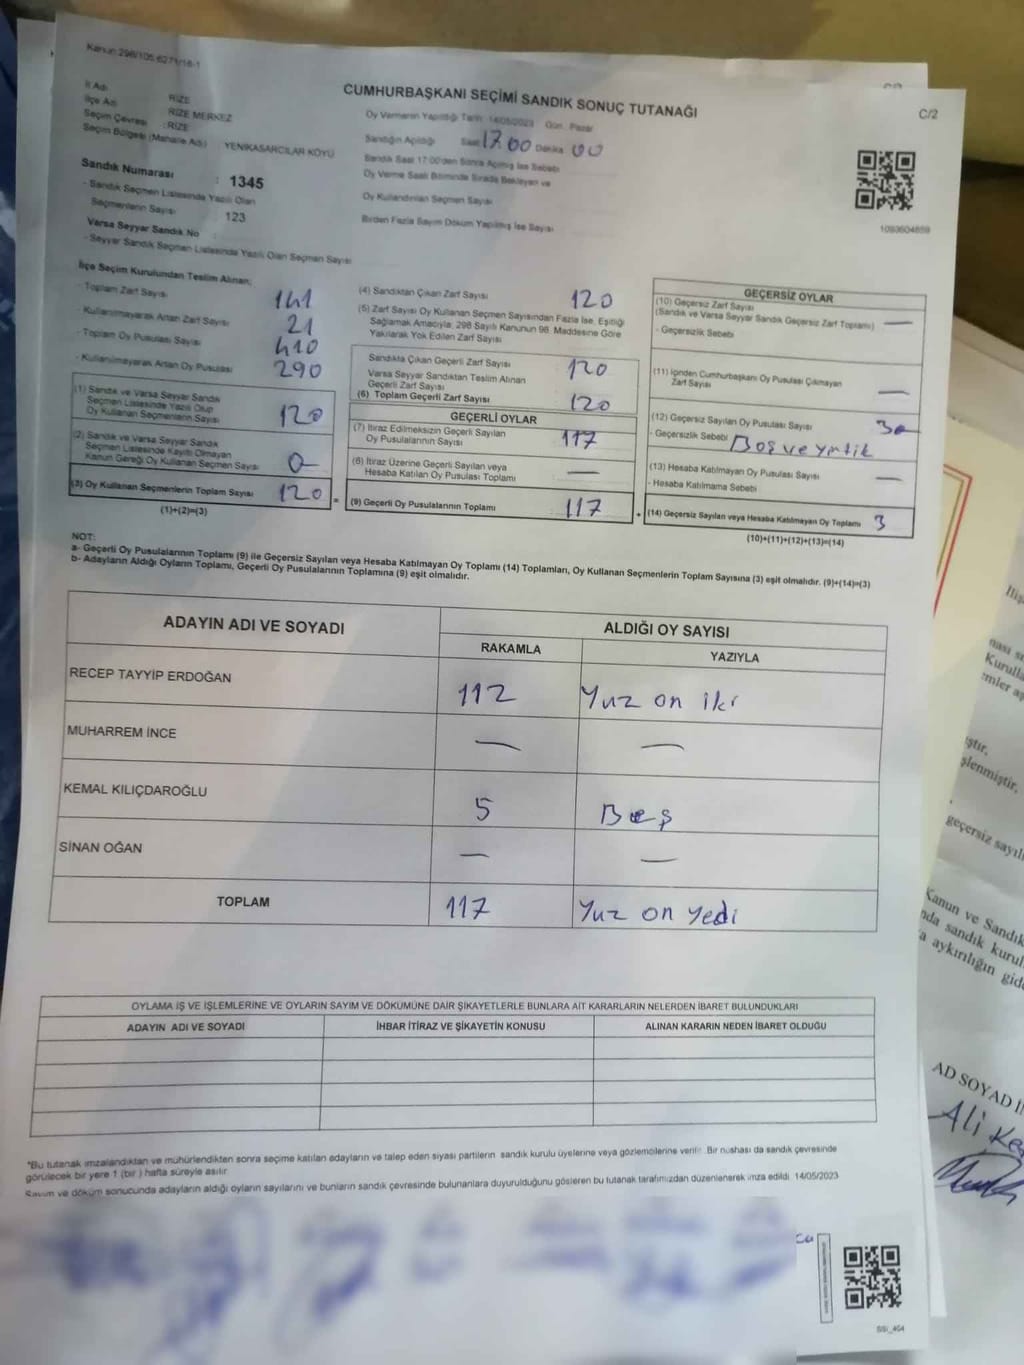 Kanun 298/105 6271/16-1
CUMHURBAŞKANI SEÇİMİ SANDIK SONUÇ TUTANAĞI
C/2
İl Adı RİZE
İlçe Adı RİZE MERKEZ
Seçim Çevresi : RİZE
Seçim Bölgesi (Mahalle Adı) YENİKASARCILAR KÖYÜ
Oy Vermenin Yapıldığı Tarih: 14/05/2023 Gün: Pazar
Sandığın Açıldığı Saat 17.00 Dakika 00
Sandık Saat 17:00'den Sonra Açılmış İse Sebebi
Oy Verme Saati Bitiminde Sırada Bekleyen ve
Oy Kullandırılan Seçmen Sayısı
Birden Fazla Sayım Döküm Yapılmış İse Sayısı
1093604859
Sandık Numarası : 1345
- Sandık Seçmen Listesinde Yazılı Olan
Seçmenlerin Sayısı 123
Varsa Seyyar Sandık No
- Seyyar Sandık Seçmen Listesinde Yazılı Olan Seçmen Sayısı
İlçe Seçim Kurulundan Teslim Alınan;
- Toplam Zarf Sayısı 141
- Kullanılmayarak Artan Zarf Sayısı 21
- Toplam Oy Pusulası Sayısı 410
- Kullanılmayarak Artan Oy Pusulası 290
(1) Sandık ve Varsa Seyyar Sandık
Seçmen Listesinde Yazılı Olup
Oy Kullanan Seçmenlerin Sayısı 120
(2) Sandık ve Varsa Seyyar Sandık
Seçmen Listesinde Kayıtlı Olmayan
Kanun Gereği Oy Kullanan Seçmen Sayısı 0
(3) Oy Kullanan Seçmenlerin Toplam Sayısı 120 =
(1)+(2)=(3)
(4) Sandıktan Çıkan Zarf Sayısı 120
(5) Zarf Sayısı Oy Kullanan Seçmen Sayısından Fazla İse, Eşitliği
Sağlamak Amacıyla, 298 Sayılı Kanunun 98. Maddesine Göre
Yakılarak Yok Edilen Zarf Sayısı
Sandıkta Çıkan Geçerli Zarf Sayısı 120
Varsa Seyyar Sandıktan Teslim Alınan
Geçerli Zarf Sayısı
(6) Toplam Geçerli Zarf Sayısı 120
GEÇERLİ OYLAR
(7) İtiraz Edilmeksizin Geçerli Sayılan
Oy Pusulalarının Sayısı 117
(8) İtiraz Üzerine Geçerli Sayılan veya
Hesaba Katılan Oy Pusulası Toplamı —
(9) Geçerli Oy Pusulalarının Toplamı 117 +
GEÇERSİZ OYLAR
(10) Geçersiz Zarf Sayısı
(Sandık ve Varsa Seyyar Sandık Geçersiz Zarf Toplamı) —
- Geçersizlik Sebebi
(11) İçinden Cumhurbaşkanı Oy Pusulası Çıkmayan
Zarf Sayısı —
(12) Geçersiz Sayılan Oy Pusulası Sayısı 3
- Geçersizlik Sebebi Boş ve yırtik
(13) Hesaba Katılmayan Oy Pusulası Sayısı —
- Hesaba Katılmama Sebebi
(14) Geçersiz Sayılan veya Hesaba Katılmayan Oy Toplamı 3
(10)+(11)+(12)+(13)=(14)
NOT:
a- Geçerli Oy Pusulalarının Toplamı (9) ile Geçersiz Sayılan veya Hesaba Katılmayan Oy Toplamı (14) Toplamları, Oy Kullanan Seçmenlerin Toplam Sayısına (3) eşit olmalıdır. (9)+(14)=(3)
b- Adayların Aldığı Oyların Toplamı, Geçerli Oy Pusulalarının Toplamına (9) eşit olmalıdır.
ADAYIN ADI VE SOYADI
ALDIĞI OY SAYISI
RAKAMLA YAZIYLA
RECEP TAYYİP ERDOĞAN 112 Yuz on iki
MUHARREM İNCE — —
KEMAL KILIÇDAROĞLU 5 Beş
SİNAN OĞAN — —
TOPLAM 117 Yuz on yedi
OYLAMA İŞ VE İŞLEMLERİNE VE OYLARIN SAYIM VE DÖKÜMÜNE DAİR ŞİKAYETLERLE BUNLARA AİT KARARLARIN NELERDEN İBARET BULUNDUKLARI
ADAYIN ADI VE SOYADI İHBAR İTİRAZ VE ŞİKAYETİN KONUSU ALINAN KARARIN NEDEN İBARET OLDUĞU
*Bu tutanak imzalandıktan ve mühürlendikten sonra seçime katılan adayların ve talep eden siyasi partilerin sandık kurulu üyelerine veya gözlemcilerine verilir. Bir nüshası da sandık çevresinde
görülecek bir yere 1 (bir) hafta süreyle asılır.
Sayım ve döküm sonucunda adayların aldığı oyların sayılarını ve bunların sandık çevresinde bulunanlara duyurulduğunu gösteren bu tutanak tarafımızdan düzenlenerek imza edildi. 14/05/2023
SSI_464
Kurulla
emler
ştır,
şlenmiştir,
geçersiz sayılı
Kanun ve Sandık
nda sandık kurul
a aykırılığın gid
AD SOYAD İ
Ali